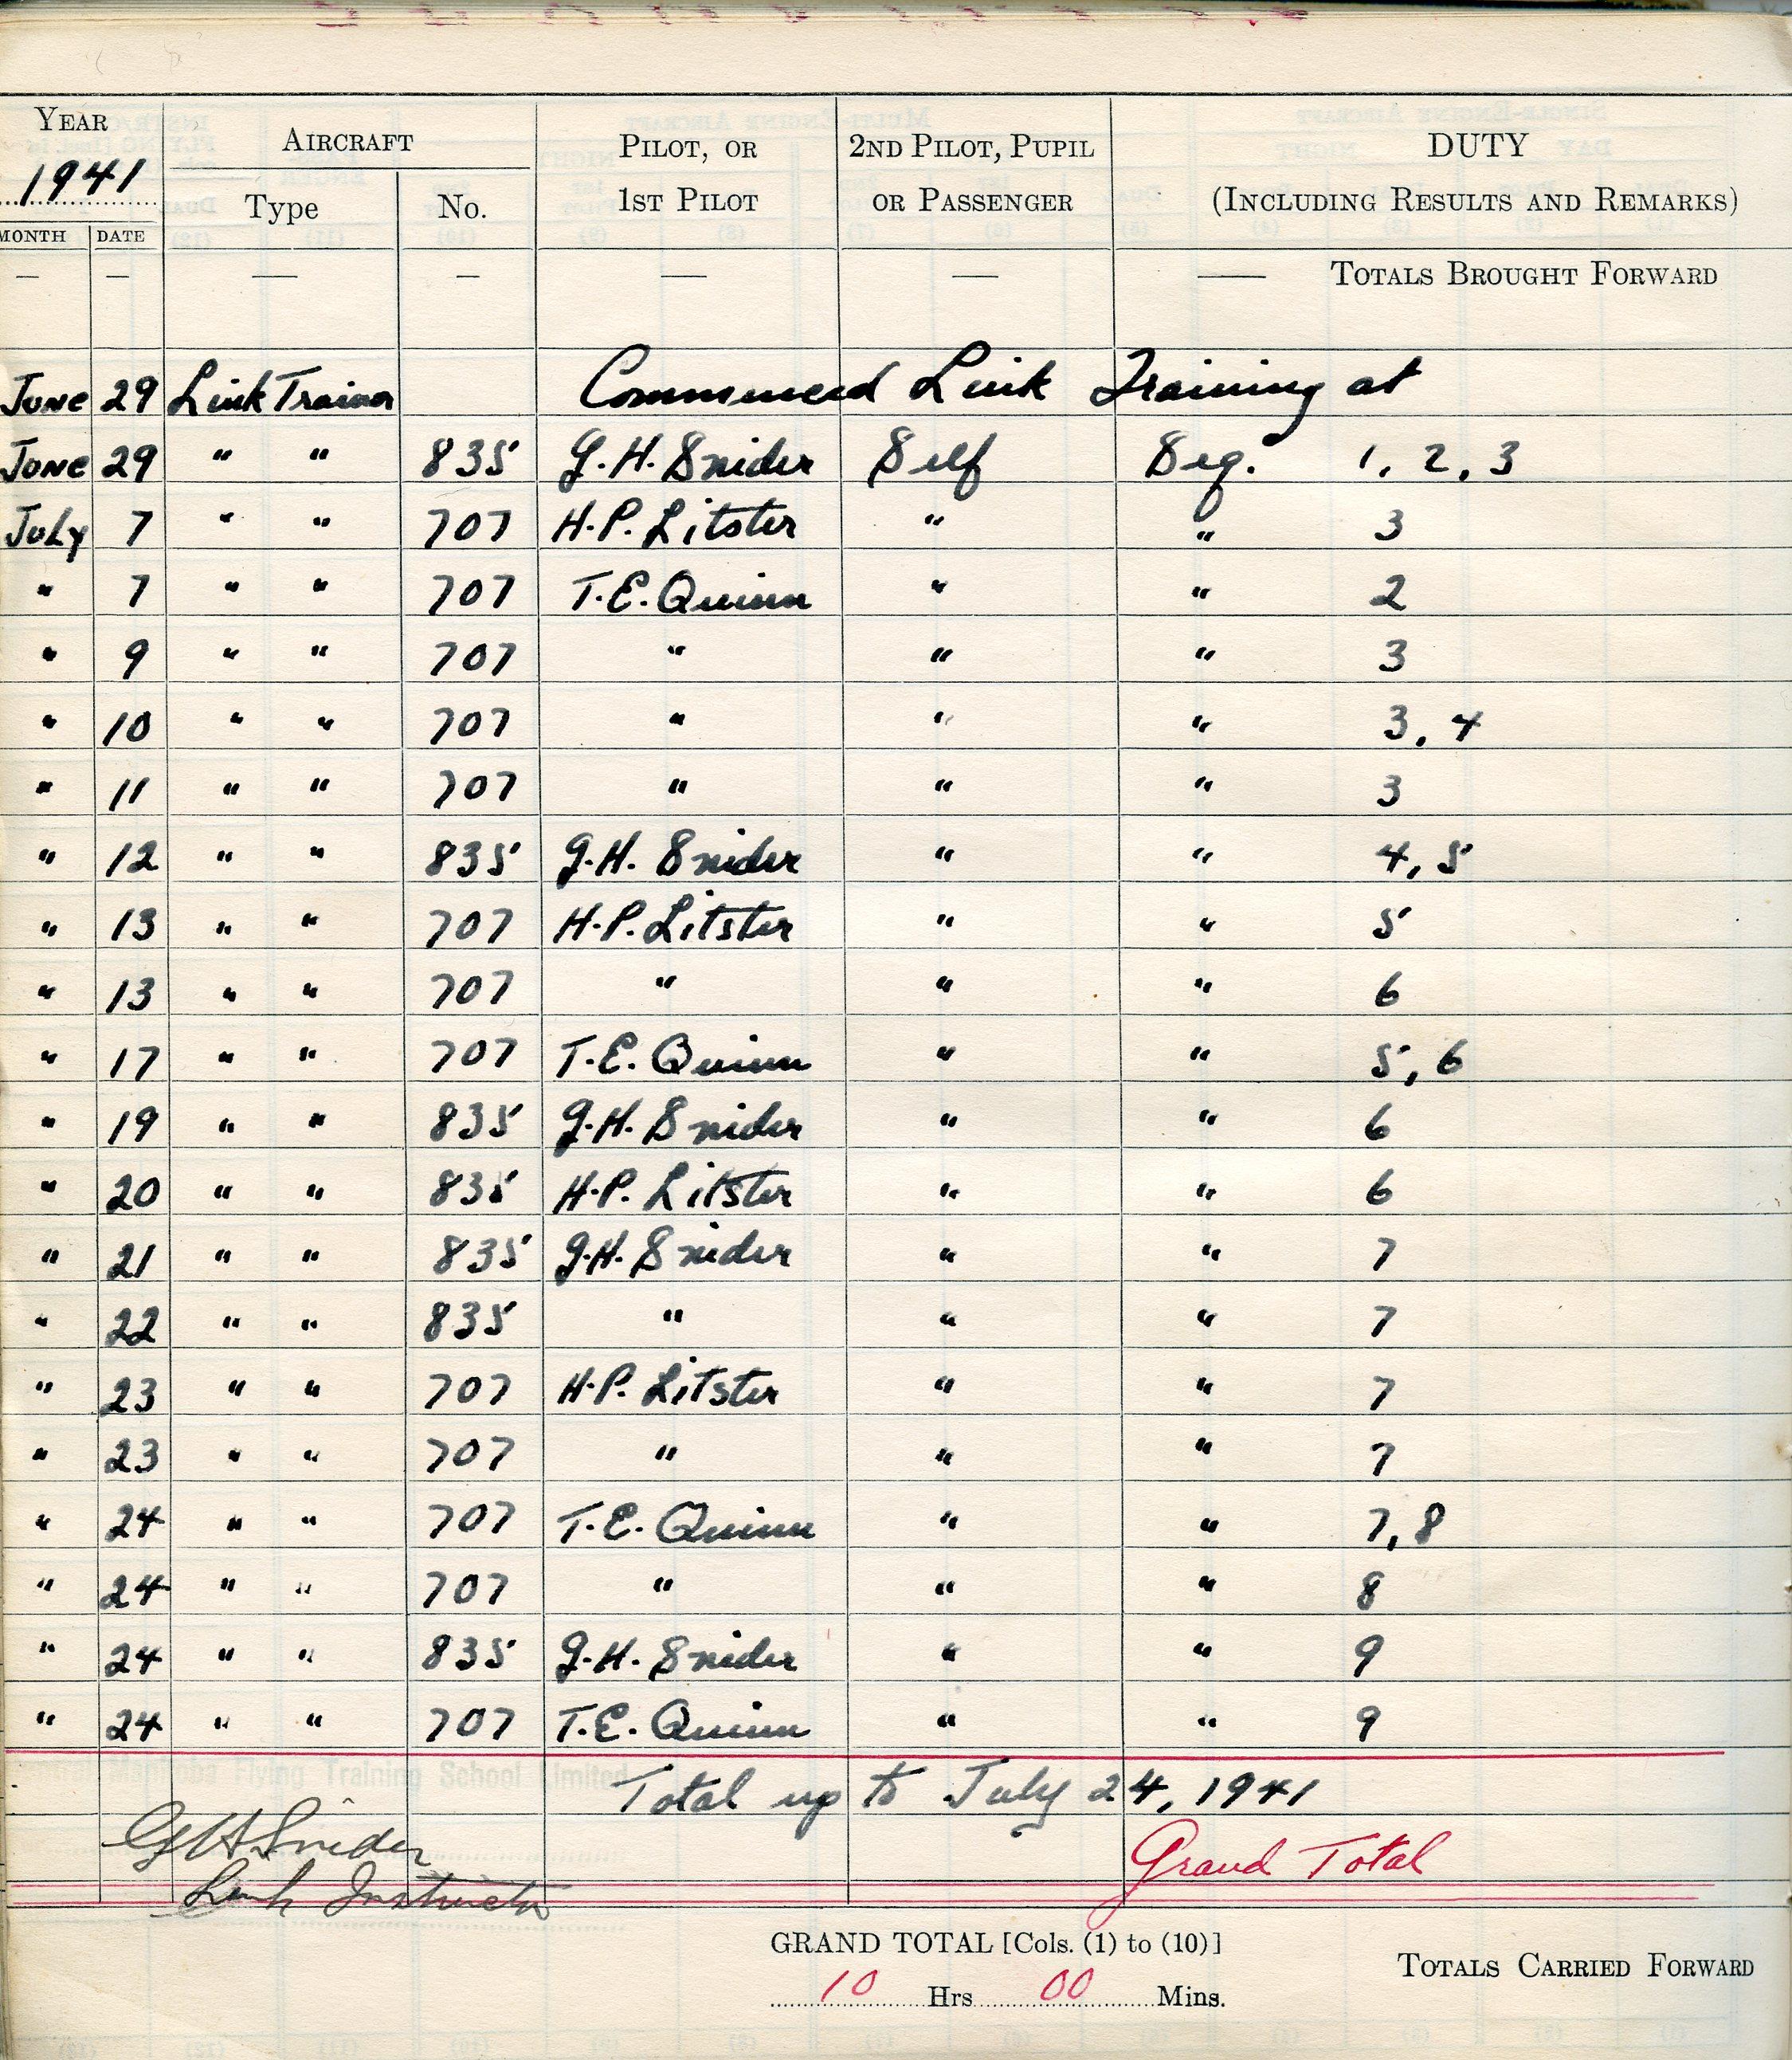 YEAR AIRCRAFT PILOT, OR 2ND PILOT, PUPIL DUTY
1941 Type No. 1ST PILOT OR PASSENGER (INCLUDING RESULTS AND REMARKS)
MONTH DATE
— — — — — — — TOTALS BROUGHT FORWARD
June 29 Link Trainer Commenced Link Training at
June 29 " " 835 G.H. Snider Self Seq. 1, 2, 3
July 7 " " 707 H.P. Litster " " 3
" 7 " " 707 T.E. Quinn " " 2
" 9 " " 707 " " " 3
" 10 " " 707 " " " 3, 4
" 11 " " 707 " " " 3
" 12 " " 835 G.H. Snider " " 4, 5
" 13 " " 707 H.P. Litster " " 5
" 13 " " 707 " " " 6
" 17 " " 707 T.E. Quinn " " 5, 6
" 19 " " 835 G.H. Snider " " 6
" 20 " " 835 H.P. Litster " " 6
" 21 " " 835 G.H. Snider " " 7
" 22 " " 835 " " " 7
" 23 " " 707 H.P. Litster " " 7
" 23 " " 707 " " " 7
" 24 " " 707 T.E. Quinn " " 7, 8
" 24 " " 707 " " " 8
" 24 " " 835 G.H. Snider " " 9
" 24 " " 707 T.E. Quinn " " 9
Manitoba Flying Training School Limited
Total up to July 24, 1941
GH Snider Grand Total
Link Instructor
GRAND TOTAL [Cols. (1) to (10)]
TOTALS CARRIED FORWARD
10 Hrs 00 Mins.